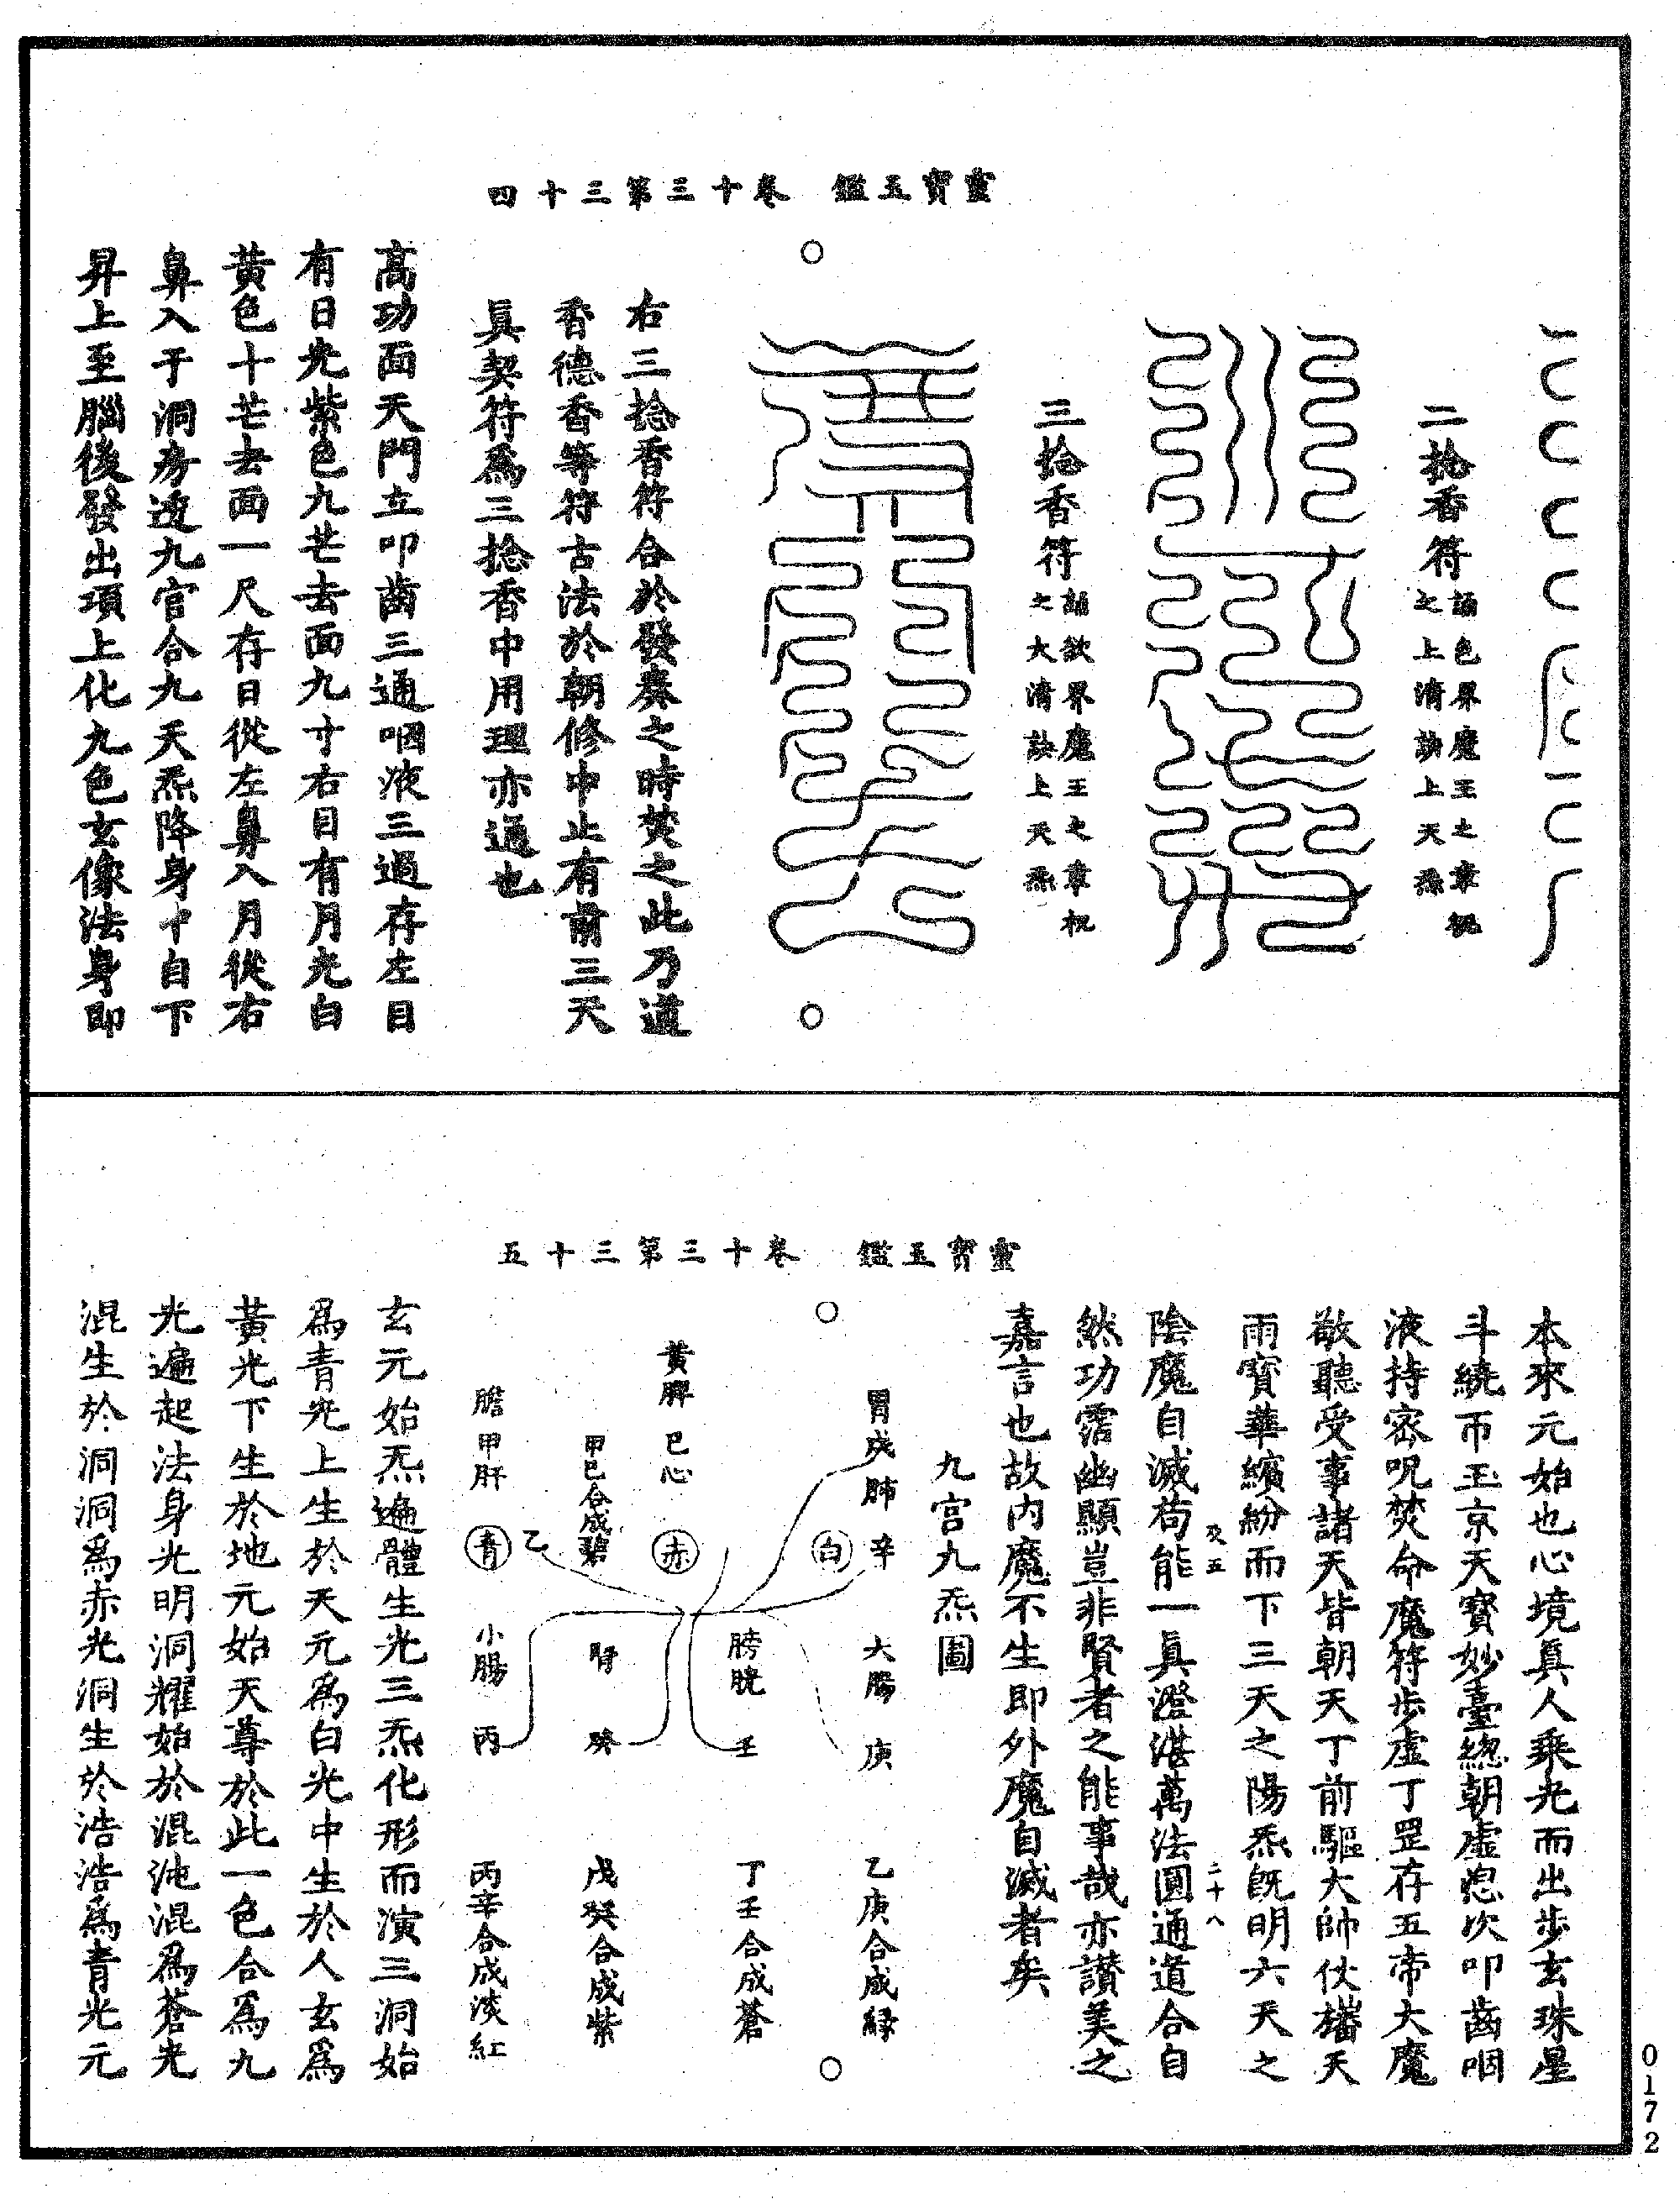 靈寶玉鑑　卷十三第三十四
二捻香符 誦色界魔王之章祝
之上清訣上天炁
三捻香符 誦欲界魔王之章祝
之大清訣上天炁
右三捻香符合於發奏之時焚之此乃道
香德香等符古法於朝修中止有前三天
眞契符爲三捻香中用理亦通也
高功面天門立叩齒三通咽液三過存左目
有日光紫色九芒去面九寸右目有月光白
黃色十芒去面一尺存日從左鼻入月從右
鼻入于洞房透九宫合九天炁降身中自下
昇上至腦後發出項上化九色玄像法身即
靈寶玉鑑　卷十三第三十五
本來元始也心境眞人乘光而出步玄珠星
斗繞帀玉京天寶妙臺總朝虛想次叩齒咽
液持密呪焚命魔符步虛丁罡存五帝大魔
敬聽受事諸天皆朝天丁前驅大帥仗旛天
雨寶華繽紛而下三天之陽炁旣明六天之
陰魔自滅苟能一眞澄湛萬法圓通道合自
癸五　二十八
然功霑幽顯豈非賢者之能事哉亦讚美之
嘉言也故内魔不生即外魔自滅者矣
九宫九炁圖
胃戊肺　辛　大腸　庚　乙庚合成緑
白
膀胱　壬　丁壬合成蒼
黃脾　己心　赤
甲己合成碧　腎　癸　戊癸合成紫
乙
膽甲肝　青　小腸　丙　丙辛合成淡紅
玄元始炁遍體生光三炁化形而演三洞始
爲青光上生於天元爲白光中生於人玄爲
黃光下生於地元始天尊於此一色合爲九
光遍起法身光明洞耀始於混沌混爲蒼光
混生於洞洞爲赤光洞生於浩浩爲青光元
0172